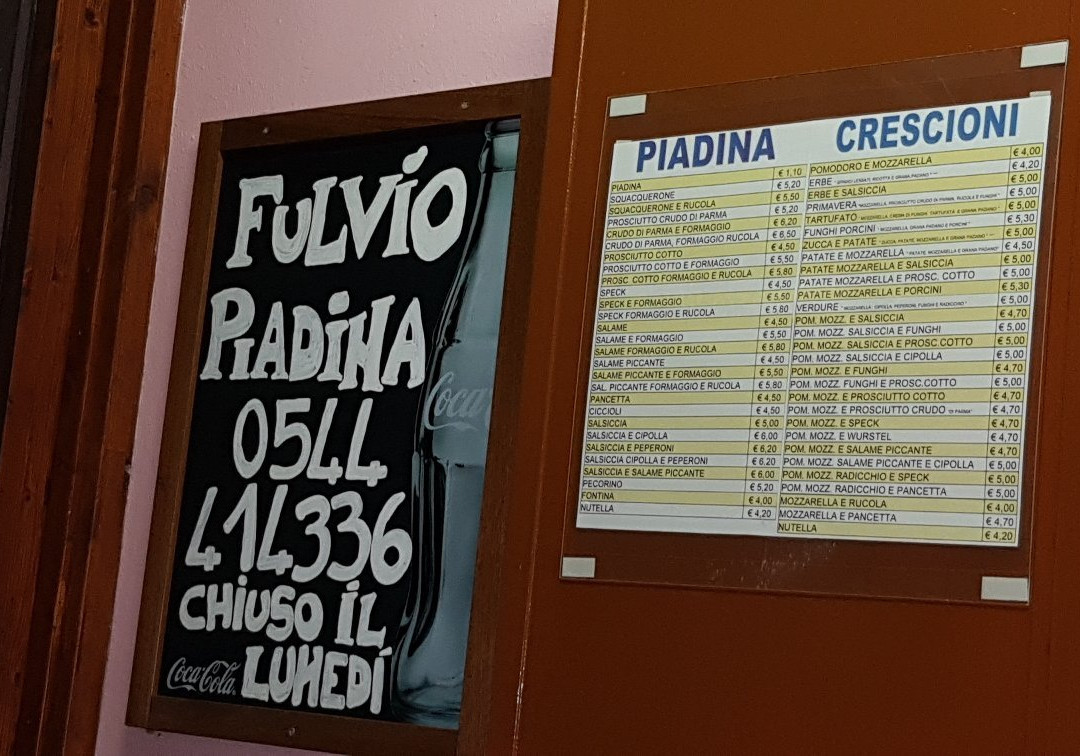 FULVIO
PIADINA
0544
414336
CHIUSO IL
LUNEDÍ
Coca-Cola
Coca
PIADINA
PIADINA € 1,10
SQUACQUERONE € 5,20
SQUACQUERONE E RUCOLA € 5,50
PROSCIUTTO CRUDO DI PARMA € 5,20
CRUDO DI PARMA E FORMAGGIO € 6,20
CRUDO DI PARMA, FORMAGGIO RUCOLA € 6,50
PROSCIUTTO COTTO € 4,50
PROSCIUTTO COTTO E FORMAGGIO € 5,50
PROSC. COTTO FORMAGGIO E RUCOLA € 5,80
SPECK € 4,50
SPECK E FORMAGGIO € 5,50
SPECK FORMAGGIO E RUCOLA € 5,80
SALAME € 4,50
SALAME E FORMAGGIO € 5,50
SALAME FORMAGGIO E RUCOLA € 5,80
SALAME PICCANTE € 4,50
SALAME PICCANTE E FORMAGGIO € 5,50
SAL. PICCANTE FORMAGGIO E RUCOLA € 5,80
PANCETTA € 4,50
CICCIOLI € 4,50
SALSICCIA € 5,00
SALSICCIA E CIPOLLA € 6,00
SALSICCIA E PEPERONI € 6,20
SALSICCIA CIPOLLA E PEPERONI € 6,20
SALSICCIA E SALAME PICCANTE € 6,00
PECORINO € 5,20
FONTINA € 4,00
NUTELLA € 4,20
CRESCIONI
POMODORO E MOZZARELLA € 4,00
ERBE € 4,20
ERBE E SALSICCIA € 5,00
PRIMAVERA "MOZZARELLA, PROSCIUTTO CRUDO DI PARMA, RUCOLA E FUNGHI" € 5,00
TARTUFATO "MOZZARELLA, CREMA DI FUNGHI TARTUFATA E GRANA PADANO" € 5,00
FUNGHI PORCINI "MOZZARELLA, GRANA PADANO E PORCINI" € 5,30
ZUCCA E PATATE "ZUCCA, PATATE, MOZZARELLA E GRANA PADANO" € 5,00
PATATE E MOZZARELLA "PATATE, MOZZARELLA E GRANA PADANO" € 4,50
PATATE MOZZARELLA E SALSICCIA € 5,00
PATATE MOZZARELLA E PROSC. COTTO € 5,00
PATATE MOZZARELLA E PORCINI € 5,30
VERDURE "MOZZARELLA, CIPOLLA, PEPERONI, FUNGHI E RADICCHIO" € 5,00
POM. MOZZ. E SALSICCIA € 4,70
POM. MOZZ. SALSICCIA E FUNGHI € 5,00
POM. MOZZ. SALSICCIA E PROSC.COTTO € 5,00
POM. MOZZ. SALSICCIA E CIPOLLA € 5,00
POM. MOZZ. E FUNGHI € 4,70
POM. MOZZ. FUNGHI E PROSC.COTTO € 5,00
POM. MOZZ. E PROSCIUTTO COTTO € 4,70
POM. MOZZ. E PROSCIUTTO CRUDO "DI PARMA" € 4,70
POM. MOZZ. E SPECK € 4,70
POM. MOZZ. E WURSTEL € 4,70
POM. MOZZ. E SALAME PICCANTE € 4,70
POM. MOZZ. SALAME PICCANTE E CIPOLLA € 5,00
POM. MOZZ. RADICCHIO E SPECK € 5,00
POM. MOZZ. RADICCHIO E PANCETTA € 5,00
MOZZARELLA E RUCOLA € 4,00
MOZZARELLA E PANCETTA € 4,70
NUTELLA € 4,20